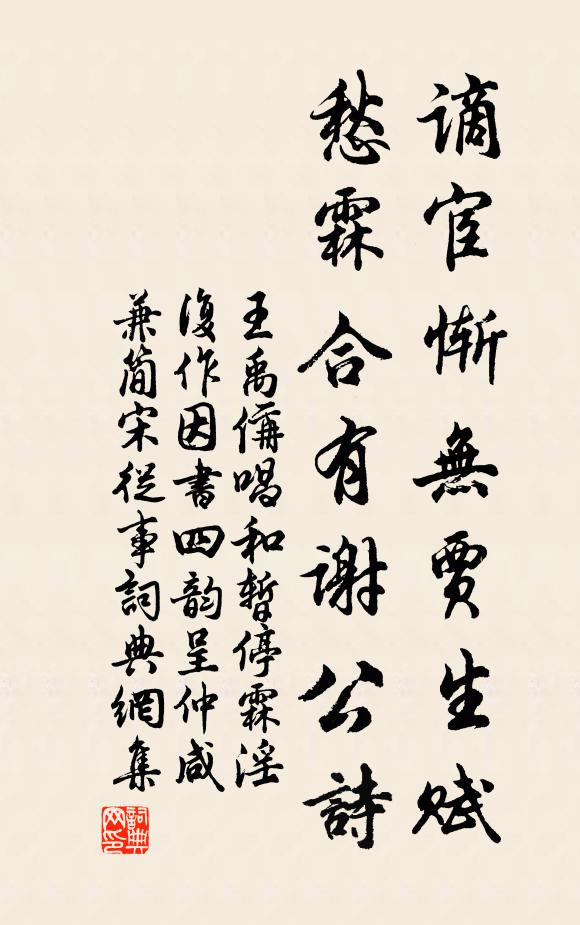 謫宦慚無賈生賦
愁霖合有謝公詩
王禹偁唱和暫停霖淫
復作因書四韵呈仲咸
兼簡宋從事詞典網集
詞典网印